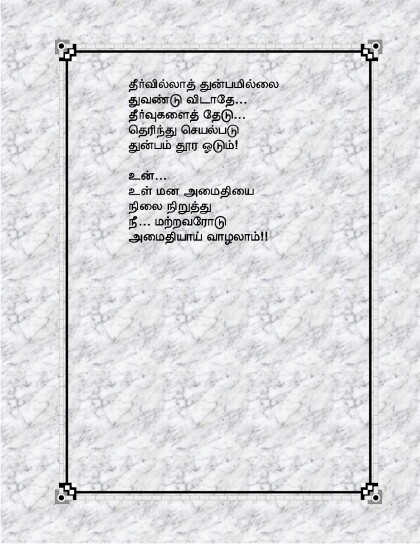 தீர்வில்லாத் துன்பமில்லை
துவண்டு விடாதே...
தீர்வுகளைத் தேடு...
தெரிந்து செயல்படு
துன்பம் தூர ஓடும்!
உன்...
உள் மன அமைதியை
நிலை நிறுத்து
நீ... மற்றவரோடு
அமைதியாய் வாழலாம்!!